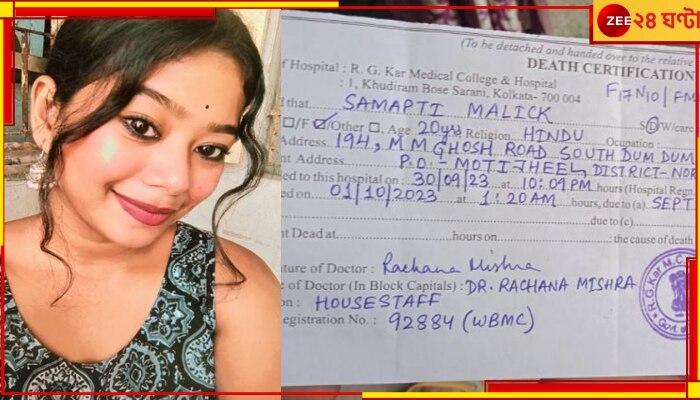 ZEE ২৪ ঘণ্টা
(To be detached and handed over to the relative
DEATH CERTIFICATION
of Hospital : R. G. Kar Medical College & Hospital
: 1, Khudiram Bose Sarani, Kolkata- 700 004
F17N10/FM
that SAMAPTI MALICK
/F /Other Age 20yrs Religion HINDU Occupation :
Address 194, M M GHOSH ROAD, SOUTH DUM DUM
nt Address P.O - MOTIJHEEL, DISTRICT- NOR
ed to this hospital on : 30/09/23 at 10:09 PM hours (Hospital Regn
ed on 01/10/2023 at 1:20 AM hours, due to (a) SEPT
due to (c)
nt Dead at hours on : the cause of death
ture of Doctor : Rachana Mishra
e of Doctor (In Block Capitals) : DR. RACHANA MISHRA
on : HOUSESTAFF
egistration No. : 92884 (WBMC)
R.G. Kar M.C.